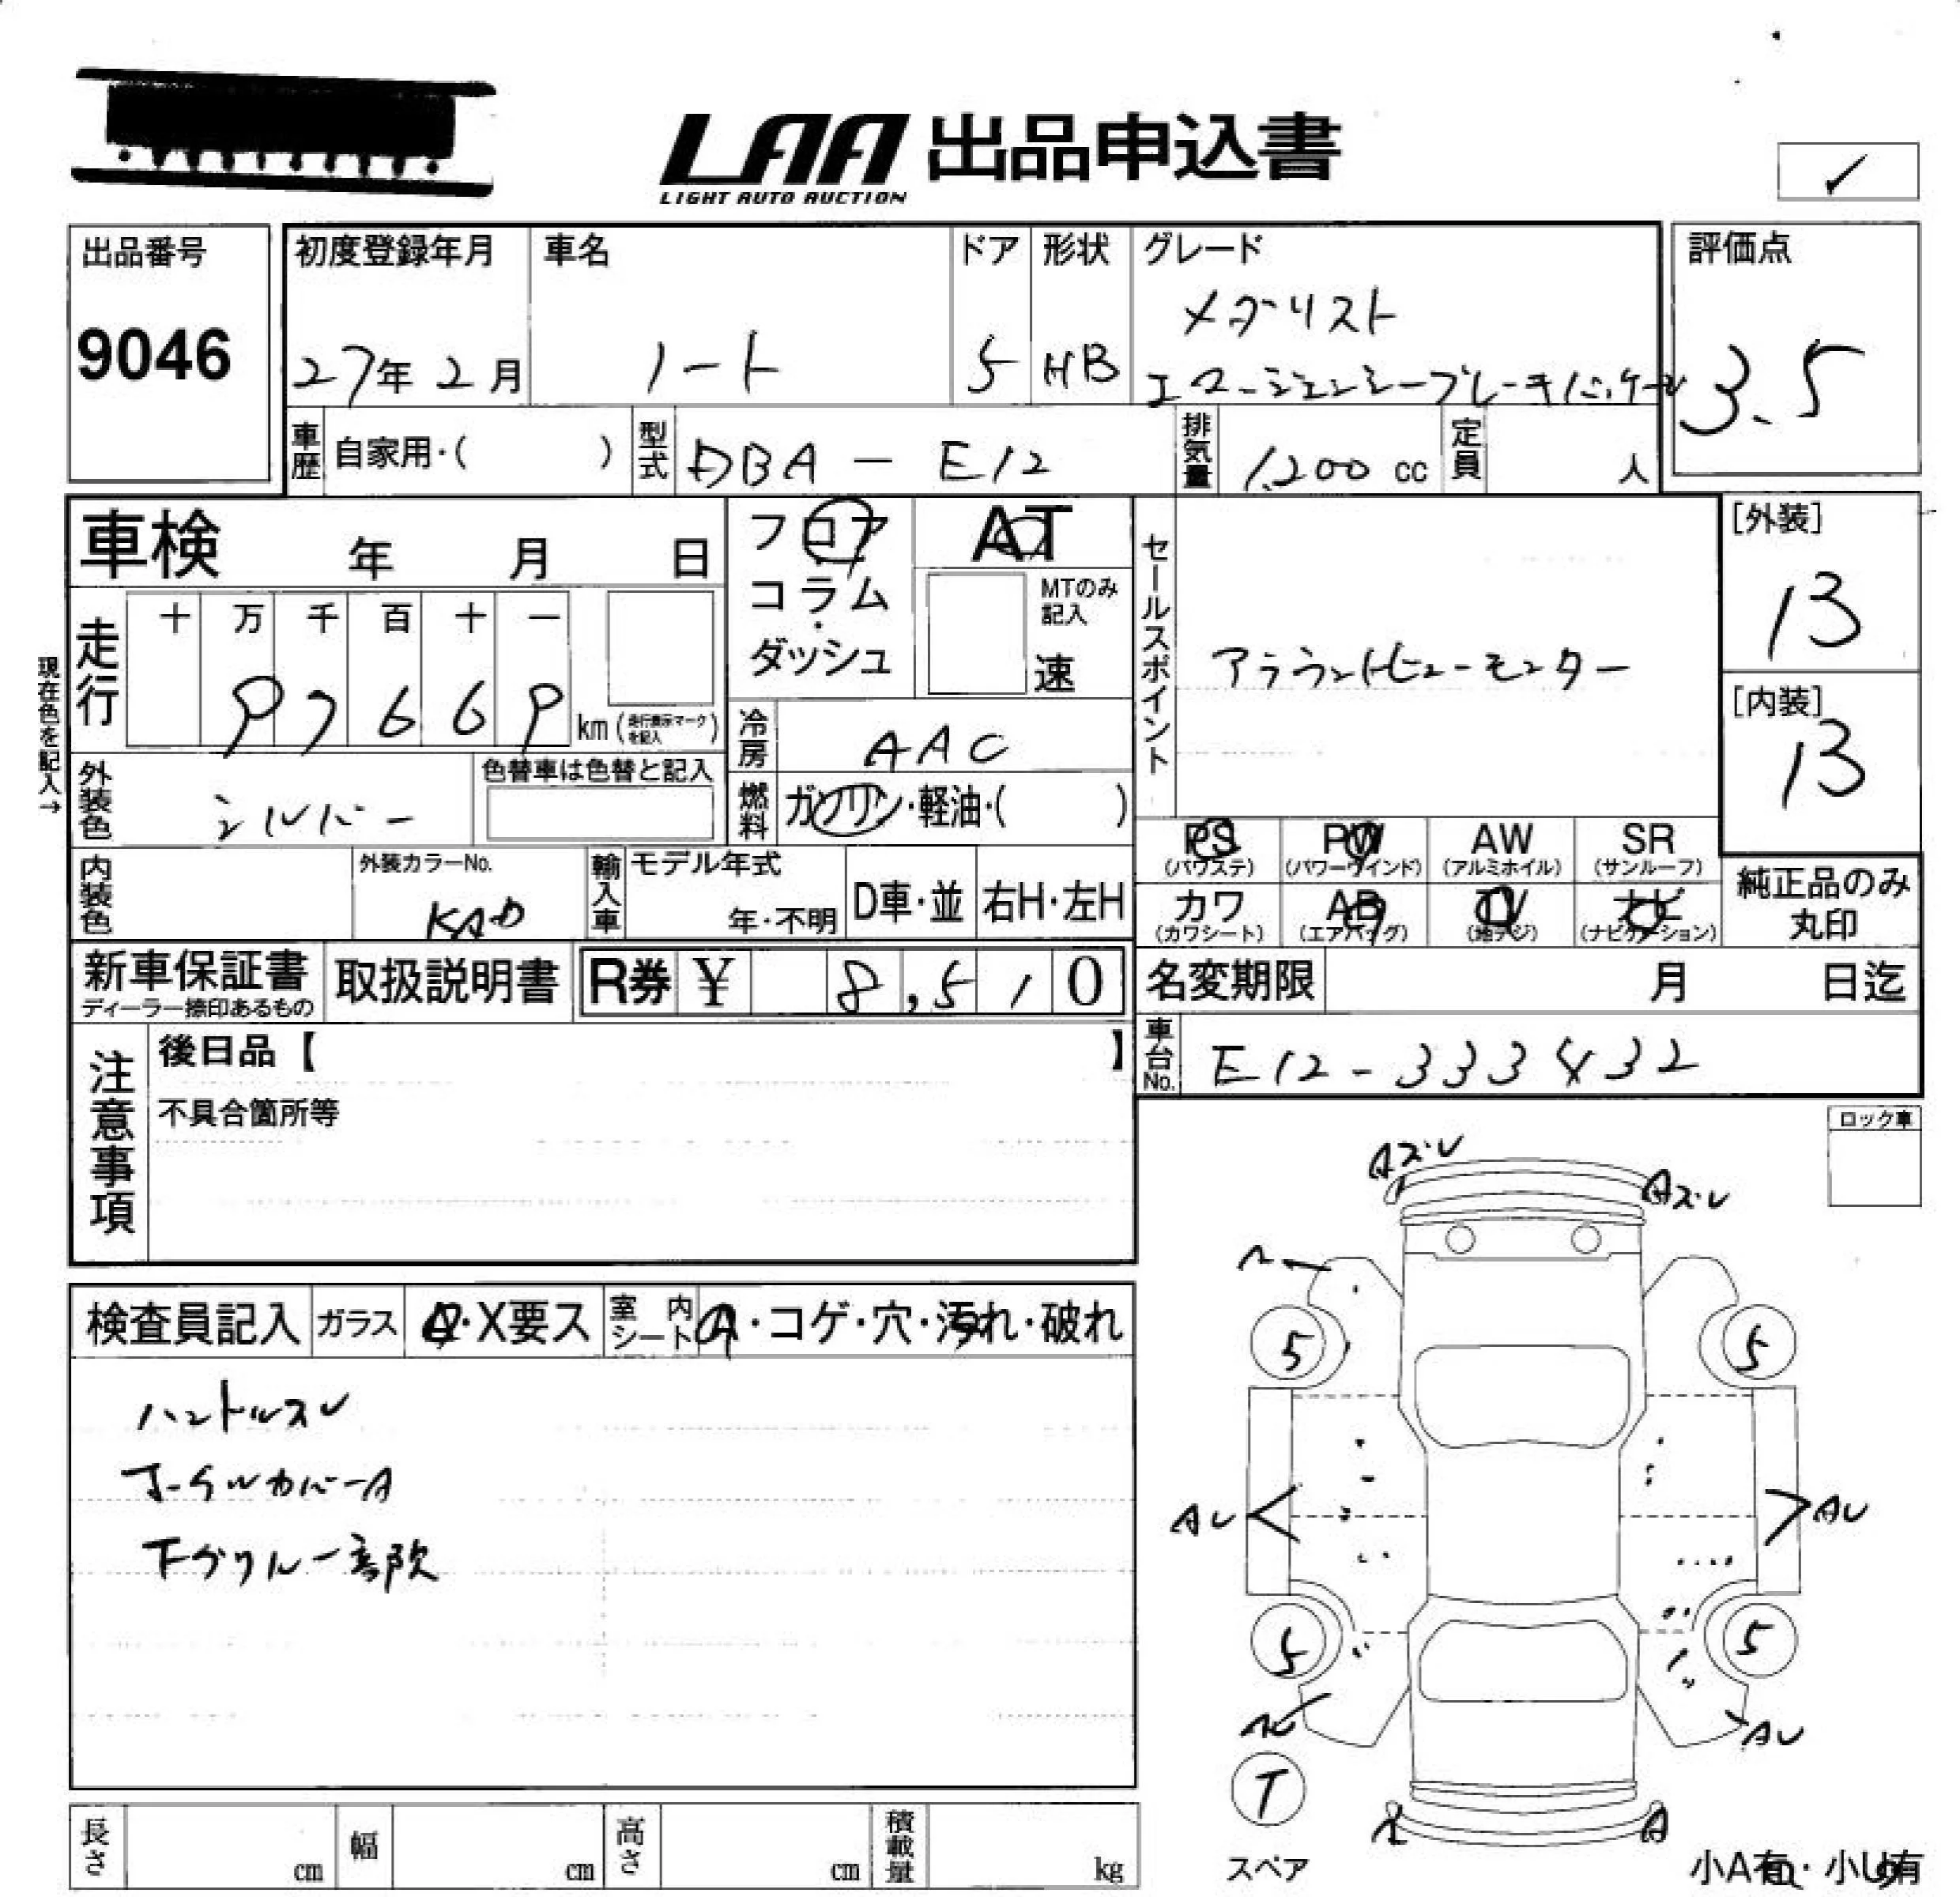 LAA 出品申込書
LIGHT AUTO AUCTION
✓
出品番号
9046
初度登録年月
27年 2月
車名
ノート
ドア
5
形状
HB
グレード
メダリスト
エマージェンシーブレーキパッケージ
評価点
3.5
車歴
自家用・( )
型式
DBA - E12
排気量
1,200 cc
定員
人
車検 年 月 日
フロア・コラム・ダッシュ
AT
MTのみ記入
速
セールスポイント
アラウンドビューモニター
[外装]
13
[内装]
13
現在色を記入→
走行
十 万 千 百 十 一
9 7 6 6 9 km (走行表示マークを記入)
冷房
AAC
外装色
シルバー
色替車は色替と記入
燃料
ガソリン・軽油・( )
PS
(パワステ)
PW
(パワーウインド)
AW
(アルミホイル)
SR
(サンルーフ)
カワ
(カワシート)
AB
(エアバッグ)
TV
(地デジ)
ナビ
(ナビゲーション)
純正品のみ
丸印
内装色
外装カラーNo.
KAD
輸入車
モデル年式
年・不明
D車・並
右H・左H
新車保証書
ディーラー捺印あるもの
取扱説明書
R券 ¥ 8,510
名変期限 月 日迄
車台No.
E12-333432
注意事項
後日品【 】
不具合箇所等
ロック車
検査員記入
ガラス
A・X要ス
室内シート
A・コゲ・穴・汚れ・破れ
ハンドルスレ
ホイールカバーA
下グリル一部欠
Aズレ
Aズレ
5
5
AU
AU
5
5
AU
T
スペア
A
小A有・小U有
長さ cm
幅 cm
高さ cm
積載量 kg